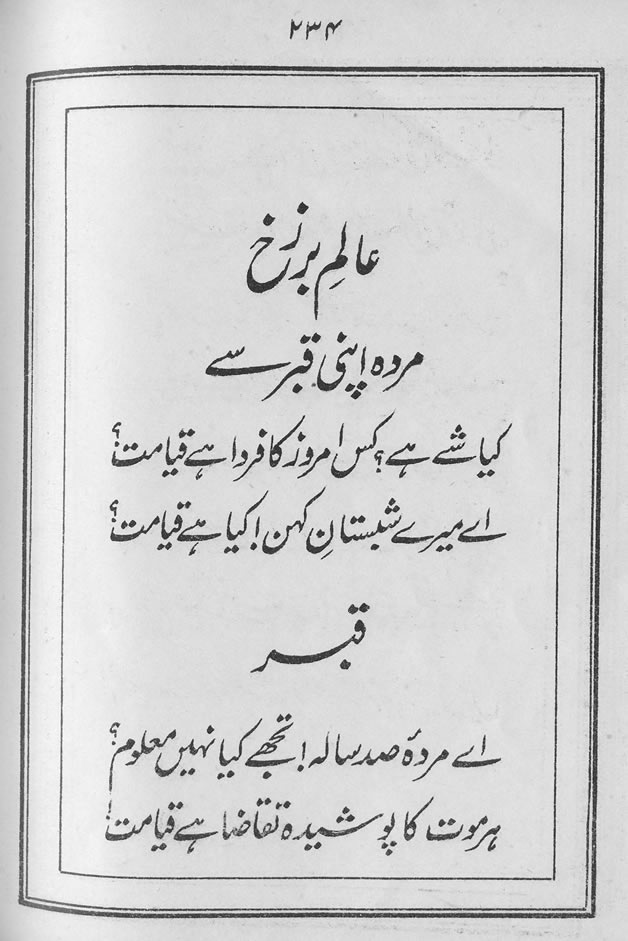 ۲۳۴
عالمِ برزخ
مردہ اپنی قبر سے
کیا شے ہے؟ کس امروز کا فردا ہے قیامت؟
اے میرے شبستانِ کہن! کیا ہے قیامت؟
قبر
اے مردۂ صد سالہ! تجھے کیا نہیں معلوم؟
ہر موت کا پوشیدہ تقاضا ہے قیامت!